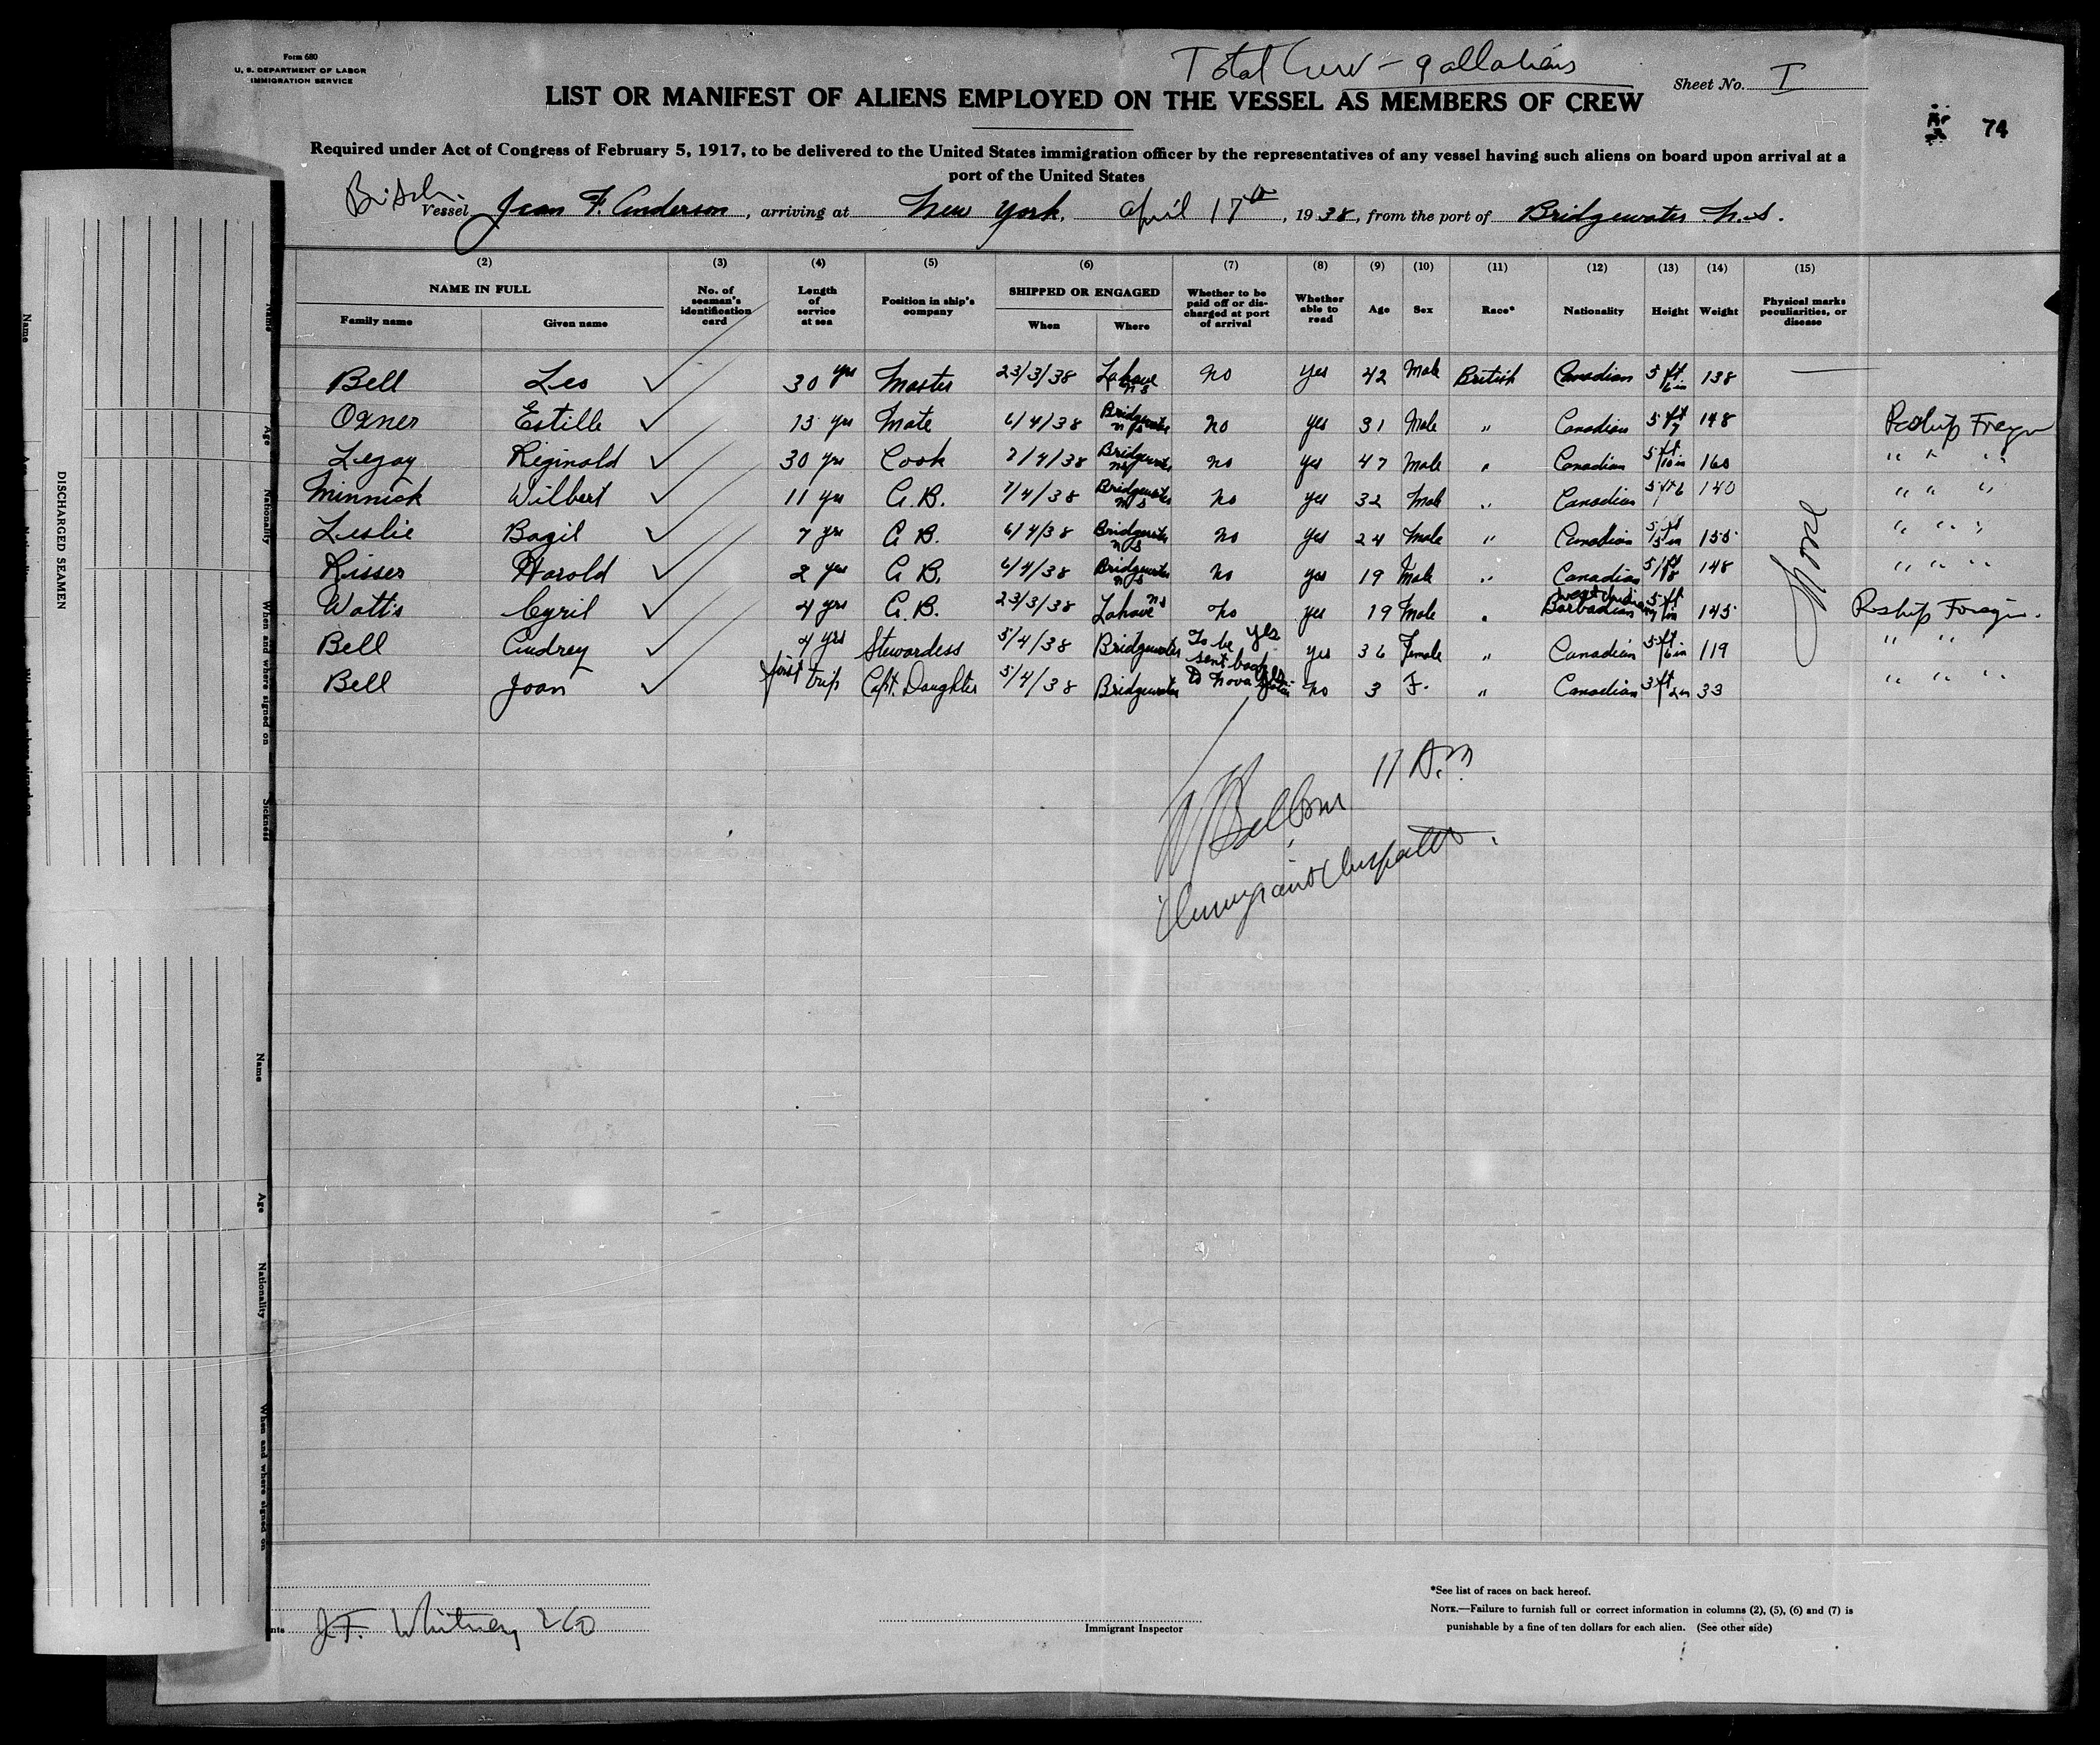 Form 680
U. S. DEPARTMENT OF LABOR
IMMIGRATION SERVICE
Total Crew - 9 all aliens
Sheet No. I
LIST OR MANIFEST OF ALIENS EMPLOYED ON THE VESSEL AS MEMBERS OF CREW
74
Required under Act of Congress of February 5, 1917, to be delivered to the United States immigration officer by the representatives of any vessel having such aliens on board upon arrival at a
port of the United States
Vessel Jean F. Anderson, arriving at New York, April 17th, 1938, from the port of Bridgewater N.S.
(2) (3) (4) (5) (6) (7) (8) (9) (10) (11) (12) (13) (14) (15)
NAME IN FULL No. of seaman's identification card Length of service at sea Position in ship's company SHIPPED OR ENGAGED Whether to be paid off or discharged at port of arrival Whether able to read Age Sex Race* Nationality Height Weight Physical marks peculiarities, or disease
Family name Given name When Where
Bell Leo 30 yrs Master 23/3/38 Lahave N S No Yes 42 Male British Canadian 5 ft 6 in 138
Oxner Estille 13 yrs Mate 6/4/38 Bridgewater N S No yes 31 Male " Canadian 5 ft 7 148 Reship
Lejay Riginald 30 yrs Cook 7/4/38 Bridgewater NS No yes 47 Male " Canadian 5 ft 10 in 160 " " "
Minnick Wilbert 11 yrs A.B. 7/4/38 Bridgewater N S No yes 32 Male " Canadian 5 ft 6 140 " " "
Leslie Bazil 7 yrs A B. 6/4/38 Bridgewater N S No Yes 24 Male " Canadian 5 ft 5 in 155 " " "
Risser Harold 2 yrs A B. 6/4/38 Bridgewater N S No yes 19 Male " Canadian 5 ft 8 148 " " "
Watts Cyril 4 yrs A. B. 23/3/38 Lahave NS No yes 19 Male " West Indian Barbadian 5 ft 7 in 145 Reship Foreign.
Bell Audrey 4 yrs Stewardess 5/4/38 Bridgewater To be Yes sent back yes 36 Female " Canadian 5 ft 6 in 119 " "
Bell Joan first trip Capt. Daughter 5/4/38 Bridgewater to Nova Scotia No 3 F. " Canadian 3 ft 2 in 33 " " "
None
11 A.M
Immigrant Inspector.
J.F. Whitney & Co
Immigrant Inspector
*See list of races on back hereof.
NOTE.—Failure to furnish full or correct information in columns (2), (5), (6) and (7) is
punishable by a fine of ten dollars for each alien. (See other side)
DISCHARGED SEAMEN
Name
Age
Nationality
When and where signed on
Sickness
Name
Age
Nationality
When and where signed on